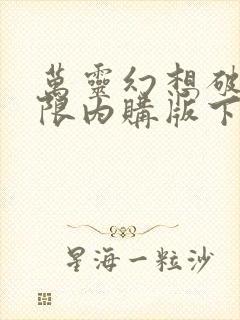 萬靈幻想破
限內購版下
星海一粒沙